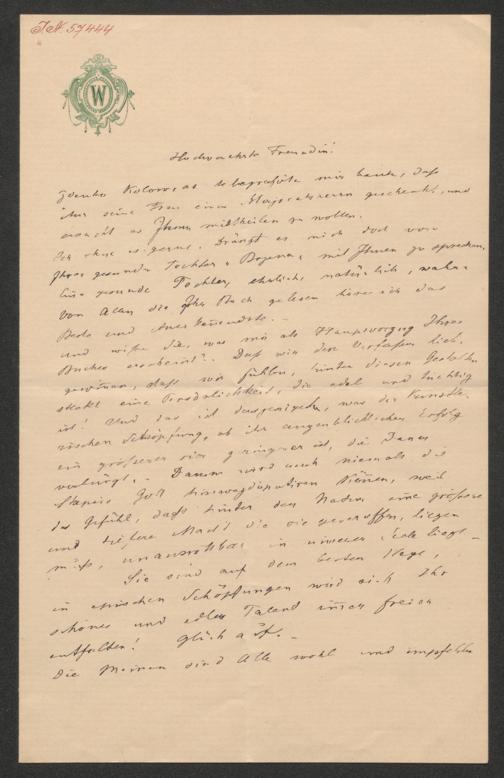 J.N. 57444
W
Hochverehrte Freundin!
Zdenko Kolowrat telegrafirte mir heute, daß
ihm seine Frau einen Majoratsherrn geschenkt, und
ersucht es Ihnen mittheilen zu wollen.
Ich thue es gerne. Drängt es mich doch von
Ihrer gesunden Tochter, "Bozena" mit Ihnen zu sprechen.
Eine gesunde Tochter, ehrlich, natürlich, wahr.
Von Allen die Ihr Buch gelesen höre ich das
Beste und Anerkennendste. –
Und wissen Sie, was mir als Hauptvorzug Ihres
Buches erscheint? Daß wir den Verfasser lieb
gewinnen, daß wir fühlen, hinter diesen Gestalten
steckt eine Persönlichkeit, die edel und tüchtig
ist! Und das ist dasjenige, was der künstle-
rischen Schöpfung, ob ihr augenblicklicher Erfolg
ein größerer oder geringerer ist, die Dauer
verbürgt. – Darum wird auch niemals die
Skepsis Gott hinwegdisputiren können, weil
das Gefühl, daß hinter der Natur eine größere
und tiefere Macht die sie geschaffen, liegen
muß, unausrottbar in unserer Seele liegt. –
Sie sind auf dem besten Wege,
in epischen Schöpfungen wird sich Ihr
schönes und edles Talent immer freier
entfalten! Glück auf. –
Die Meinen sind Alle wohl und empfehlen